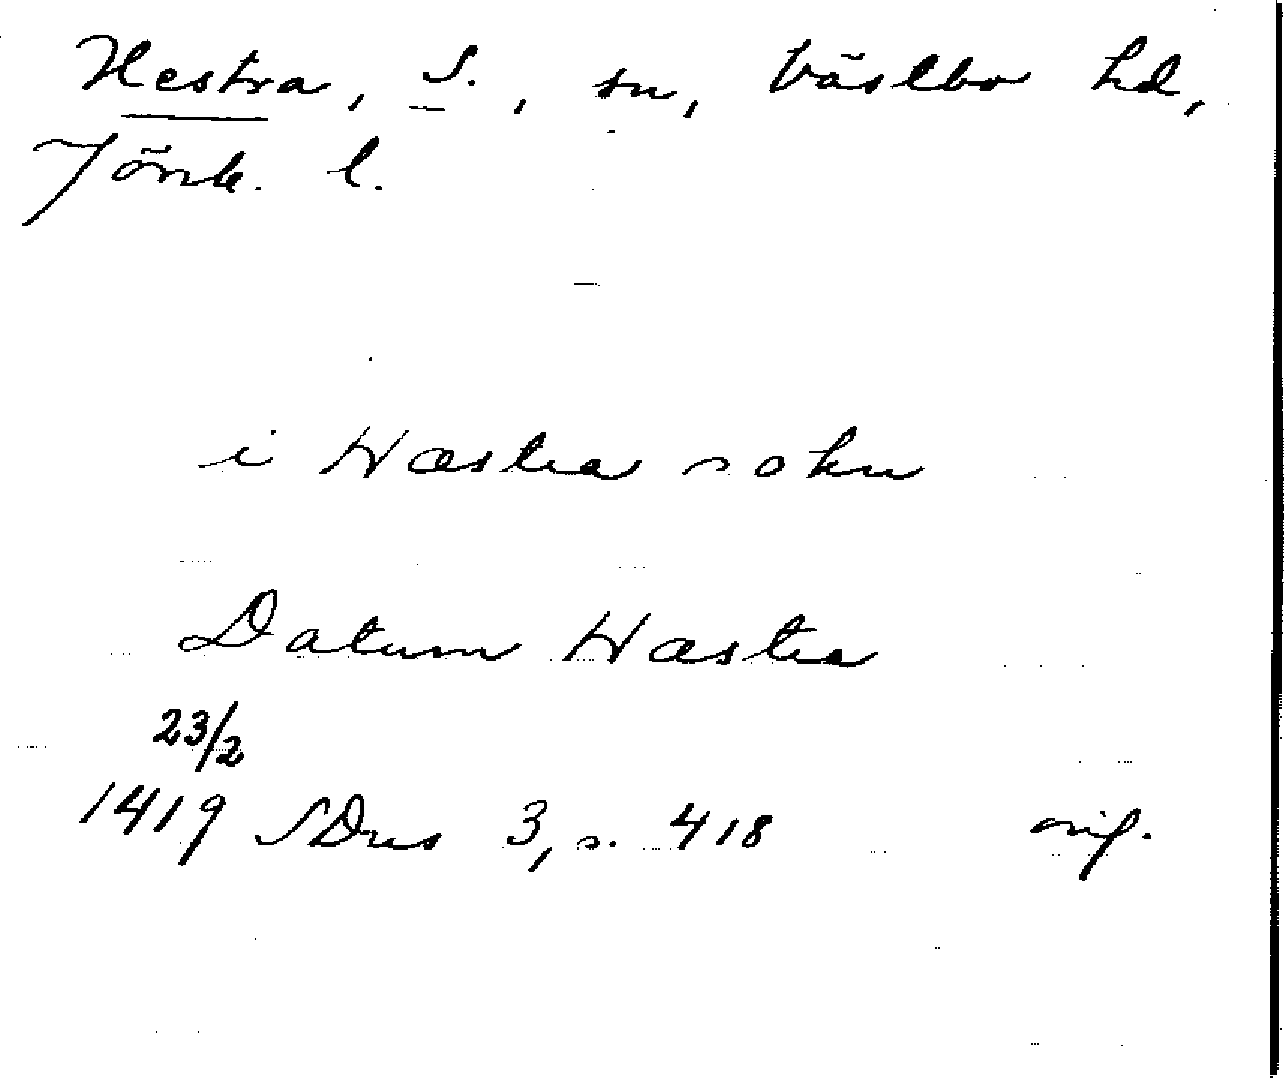 Hestra, S., sn, Västbo hd,
Jönk. l.
i Hæstra sokn
Datum Hæstra
23/2
1419 SDns 3, s. 418 orig.